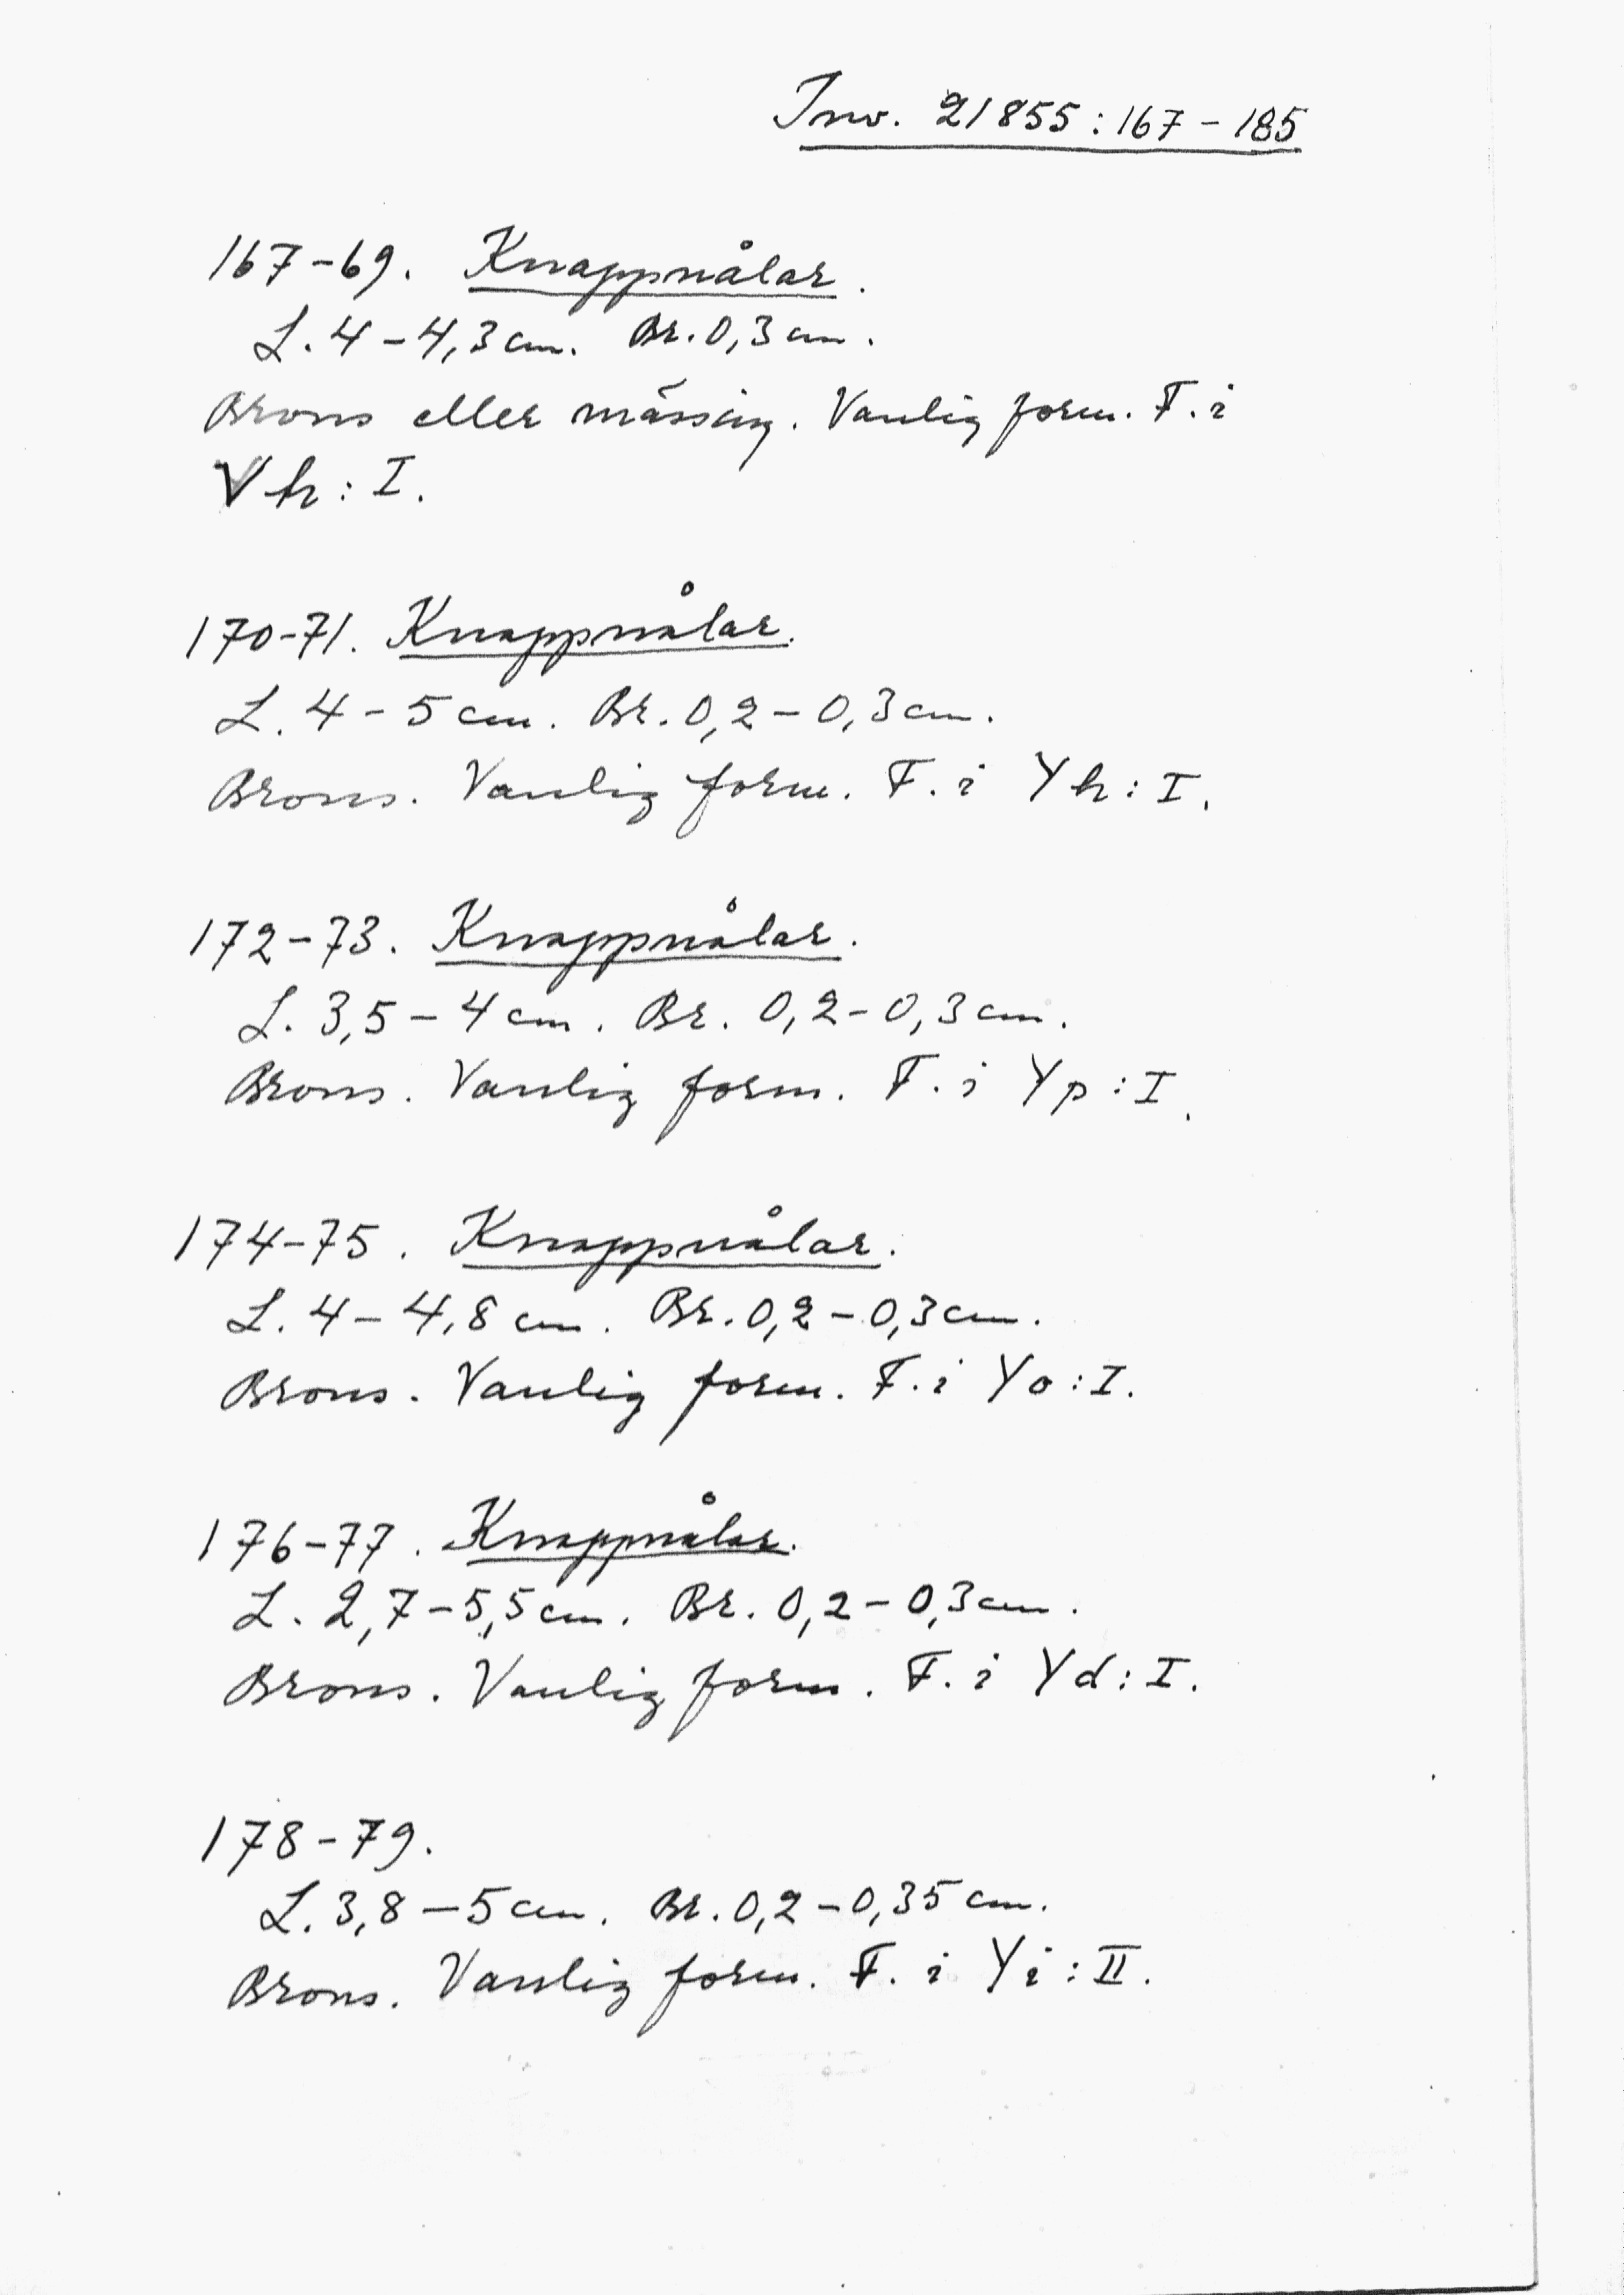 Inv. 21855:167-185
167-69. Knappnålar.
L. 4-4,3 cm. Br. 0,3 cm.
Brons eller mässing. Vanlig form. F. i
Vh: I.
170-71. Knappnålar.
L. 4-5 cm. Br. 0,2-0,3 cm.
Brons. Vanlig form. F. i Yh: I.
172-73. Knappnålar.
L. 3,5-4 cm. Br. 0,2-0,3 cm.
Brons. Vanlig form. F. i Yp: I.
174-75. Knappnålar.
L. 4-4,8 cm. Br. 0,2-0,3 cm.
Brons. Vanlig form. F. i Yo: I.
176-77. Knappnålar.
L. 2,7-5,5 cm. Br. 0,2-0,3 cm.
Brons. Vanlig form. F. i Yd: I.
178-79.
L. 3,8-5 cm. Br. 0,2-0,35 cm.
Brons. Vanlig form. F. i Yi: II.